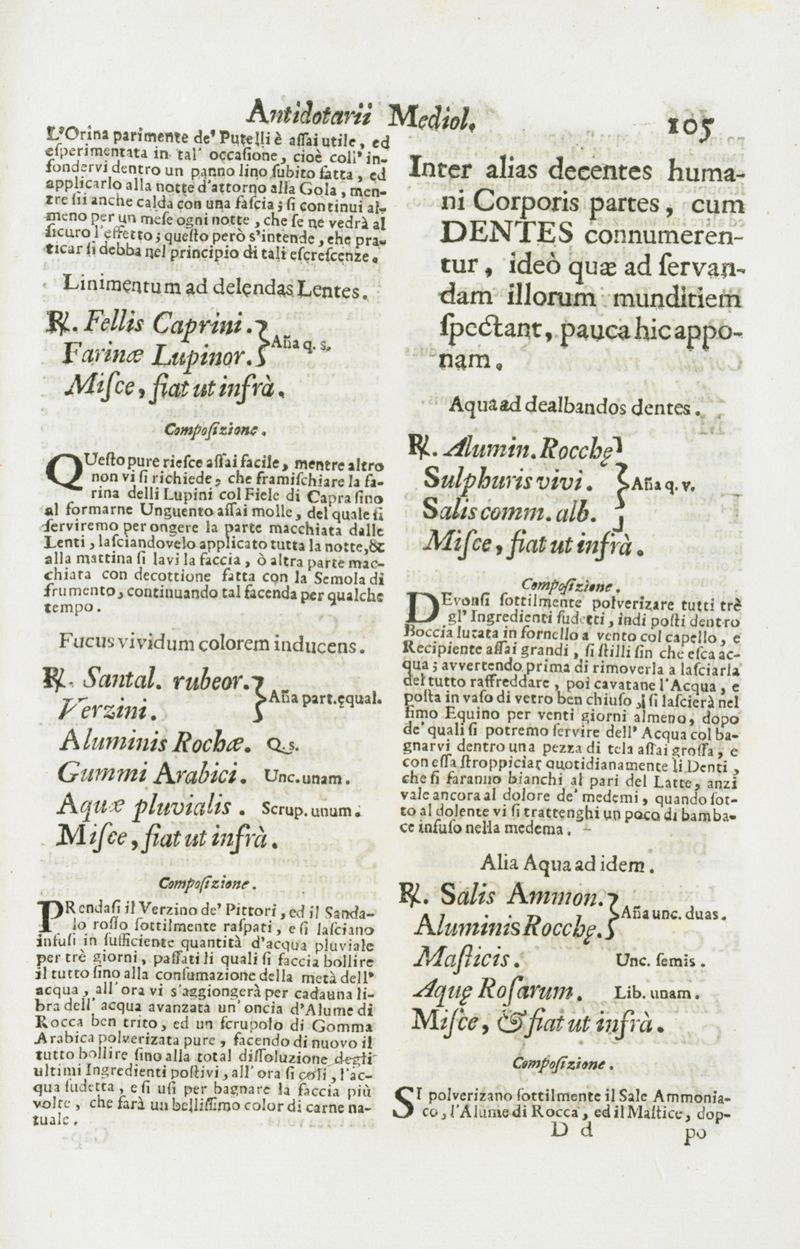 Antidotarii Mediol. 105
L'Orina parimente de' Putelli è aſſai utile, ed
eſperimentata in tal' occaſione, cioè coll' in-
fondervi dentro un panno lino ſubito fatta, ed
applicarlo alla notte d'attorno alla Gola, men-
tre ſii anche calda con una faſcia; ſi continui al-
meno per un meſe ogni notte, che ſe ne vedrà al
ſicuro l'effetto; queſto però s'intende, che pra-
ticar ſi debba nel principio di tali eſcreſcenze.
Linimentum ad delendas Lentes.
℞. Fellis Caprini.
Farinæ Lupinor. } Aña q. s.
Miſce, fiat ut infrà.
Compoſizione.
QUeſto pure rieſce aſſai facile, mentre altro
non vi ſi richiede, che framiſchiare la fa-
rina delli Lupini col Fiele di Capra ſino
al formarne Unguento aſſai molle, del quale ſi
ſerviremo per ongere la parte macchiata dalle
Lenti, laſciandovelo applicato tutta la notte, &
alla mattina ſi lavi la faccia, ò altra parte mac-
chiata con decottione fatta con la Semola di
frumento, continuando tal facenda per qualche
tempo.
Fucus vividum colorem inducens.
℞. Santal. rubeor.
Verzini. } Aña part. equal.
Aluminis Rochæ. Q. s.
Gummi Arabici. Unc. unam.
Aquæ pluvialis. Scrup. unum.
Miſce, fiat ut infrà.
Compoſizione.
PRendaſi il Verzino de' Pittori, ed il Sanda-
lo roſſo ſottilmente raſpati, e ſi laſciano
infuſi in ſufficiente quantità d'acqua pluviale
per trè giorni, paſſati li quali ſi faccia bollire
il tutto ſino alla conſumazione della metà dell'
acqua, all' ora vi s'aggiongerà per cadauna li-
bra dell' acqua avanzata un' oncia d'Alume di
Rocca ben trito, ed un ſcrupolo di Gomma
Arabica polverizata pure, facendo di nuovo il
tutto bollire ſino alla total diſſoluzione degli
ultimi Ingredienti poſtivi, all' ora ſi coli, l'ac-
qua ſudetta, e ſi uſi per bagnare la faccia più
volte, che farà un belliſſimo color di carne na-
tuale.
Inter alias decentes huma-
ni Corporis partes, cum
DENTES connumeren-
tur, ideò quæ ad ſervan-
dam illorum munditiem
ſpectant, pauca hic appo-
nam.
Aqua ad dealbandos dentes.
℞. Alumin. Rocchę
Sulphuris vivi. } Aña q. v.
Salis comm. alb.
Miſce, fiat ut infrà.
Compoſizione.
DEvonſi ſottilmente polverizare tutti trè
gl' Ingredienti ſudetti, indi poſti dentro
Boccia lutata in fornello a vento col capello, e
Recipiente aſſai grandi, ſi ſtilli ſin che eſca ac-
qua; avvertendo prima di rimoverla a laſciarla
del tutto raffreddare, poi cavatane l'Acqua, e
poſta in vaſo di vetro ben chiuſo, ſi laſcierà nel
fimo Equino per venti giorni almeno, dopo
de' quali ſi potremo ſervire dell' Acqua col ba-
gnarvi dentro una pezza di tela aſſai groſſa, e
con eſſa ſtroppiciar quotidianamente li Denti,
che ſi faranno bianchi al pari del Latte, anzi
vale ancora al dolore de' medemi, quando ſot-
to al dolente vi ſi trattenghi un poco di bamba-
ce infuſo nella medema.
Alia Aqua ad idem.
℞. Salis Ammon.
Aluminis Rocchę. } Aña unc. duas.
Maſticis. Unc. ſemis.
Aquę Roſarum. Lib. unam.
Miſce, & fiat ut infrà.
Compoſizione.
SI polverizano ſottilmente il Sale Ammonia-
co, l'Alume di Rocca, ed il Maſtice, dop-
D d po